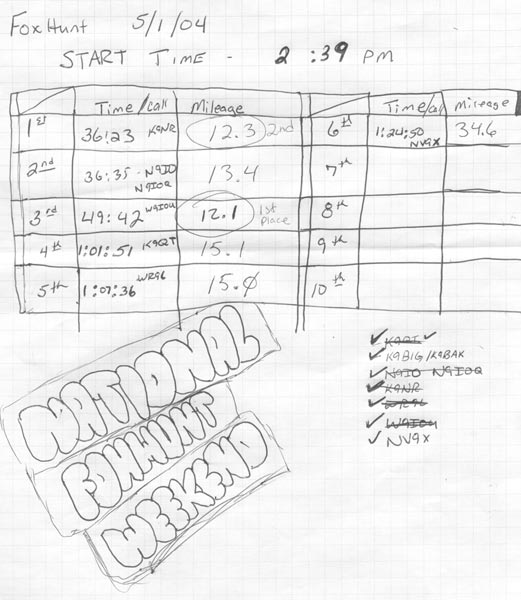 Fox Hunt 5/1/04
START TIME - 2:39 PM
Time/call Mileage Time/call Mileage
1st 36:23 K9NR 12.3 2nd 6th 1:24:50 NV9X 34.6
2nd 36:35 - N9IO N9IOQ 13.4 7th
3rd 49:42 W9IOU 12.1 1st Place 8th
4th 1:01:51 K9QT 15.1 9th
5th 1:07:36 WR9L 15.0 10th
K9BIG/K9BAK
N9IO N9IOQ
K9NR
WR9L
W9IOU
NV9X
NATIONAL
FOXHUNT
WEEKEND